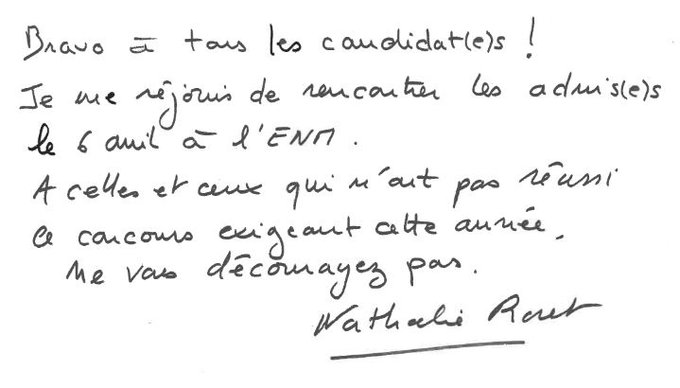 Bravo à tous les candidat(e)s !
Je me réjouis de rencontrer les admis(e)s
le 6 avril à l'ENM.
A celles et ceux qui n'ont pas réussi
ce concours exigeant cette année,
Ne vous découragez pas.
Nathalie Roret